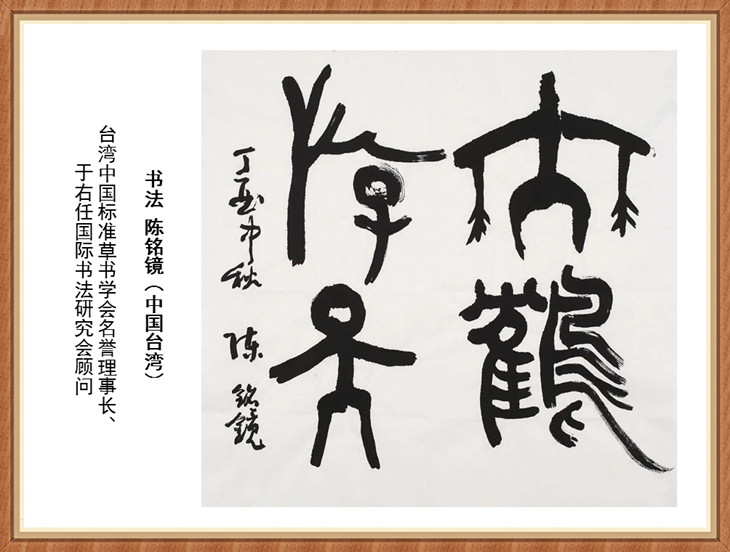 舞鶴
游天
丁酉中秋 陳銘鏡
书法 陈铭镜（中国台湾）
台湾中国标准草书学会名誉理事长、
于右任国际书法研究会顾问